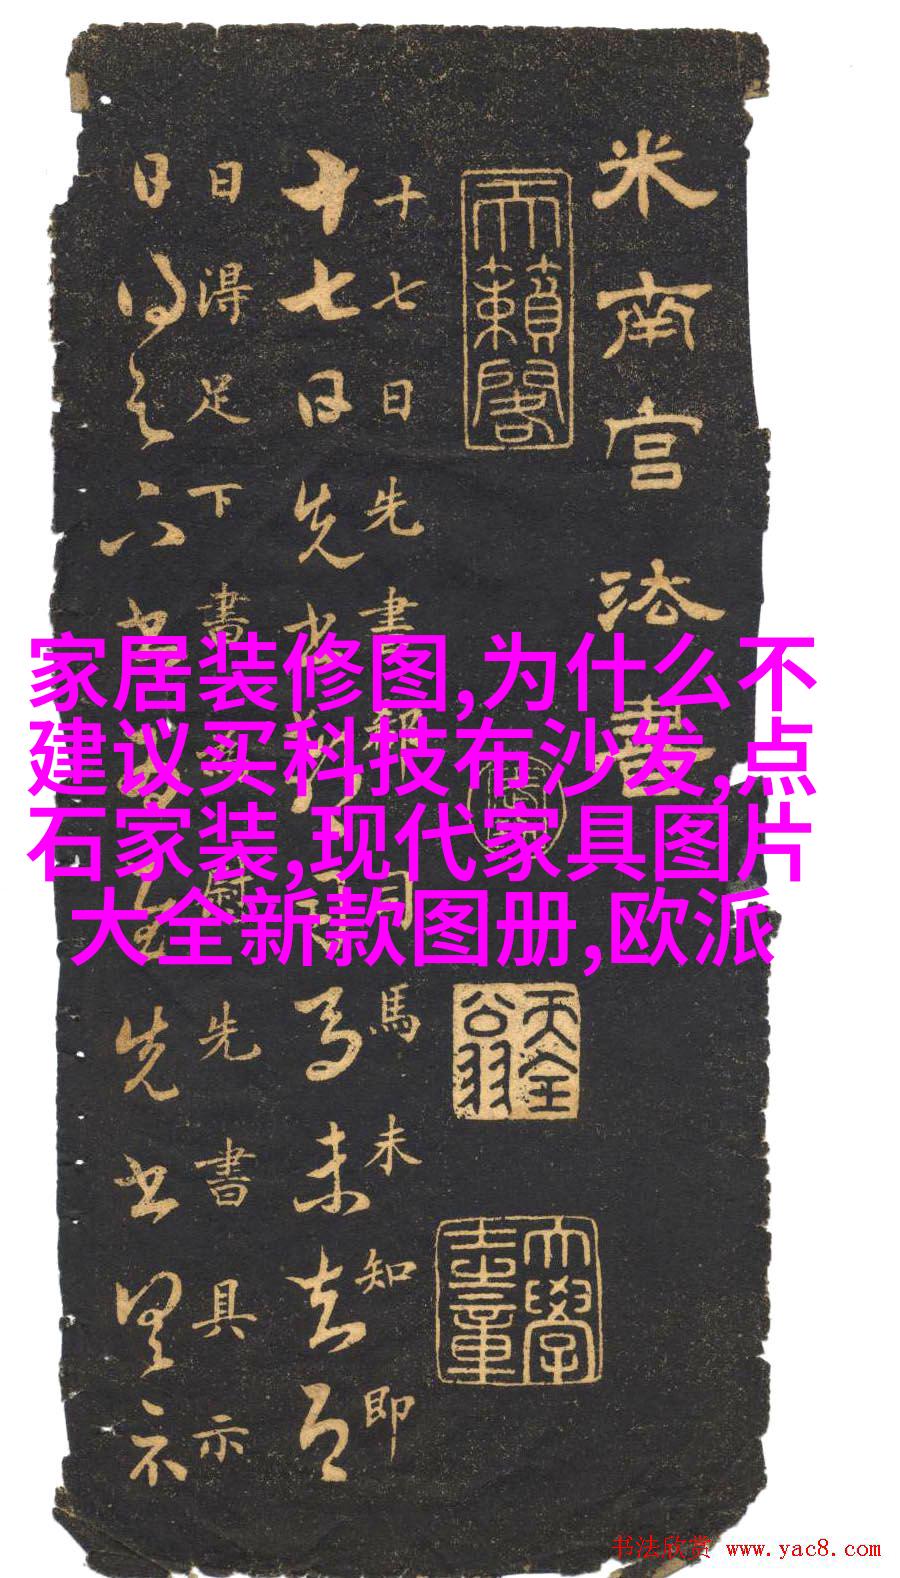 米南宫法書
天籟閣
天全
公羽
大學
士章
十七日先書郗司馬未知即
十七日先書郗司馬未去即
日得足下書為慰先書具示
日得足下書為慰先書具示
家居装修图,为什么不
建议买科技布沙发,点
石家装,现代家具图片
大全新款图册,欧派
书法欣赏 www.yac8.com